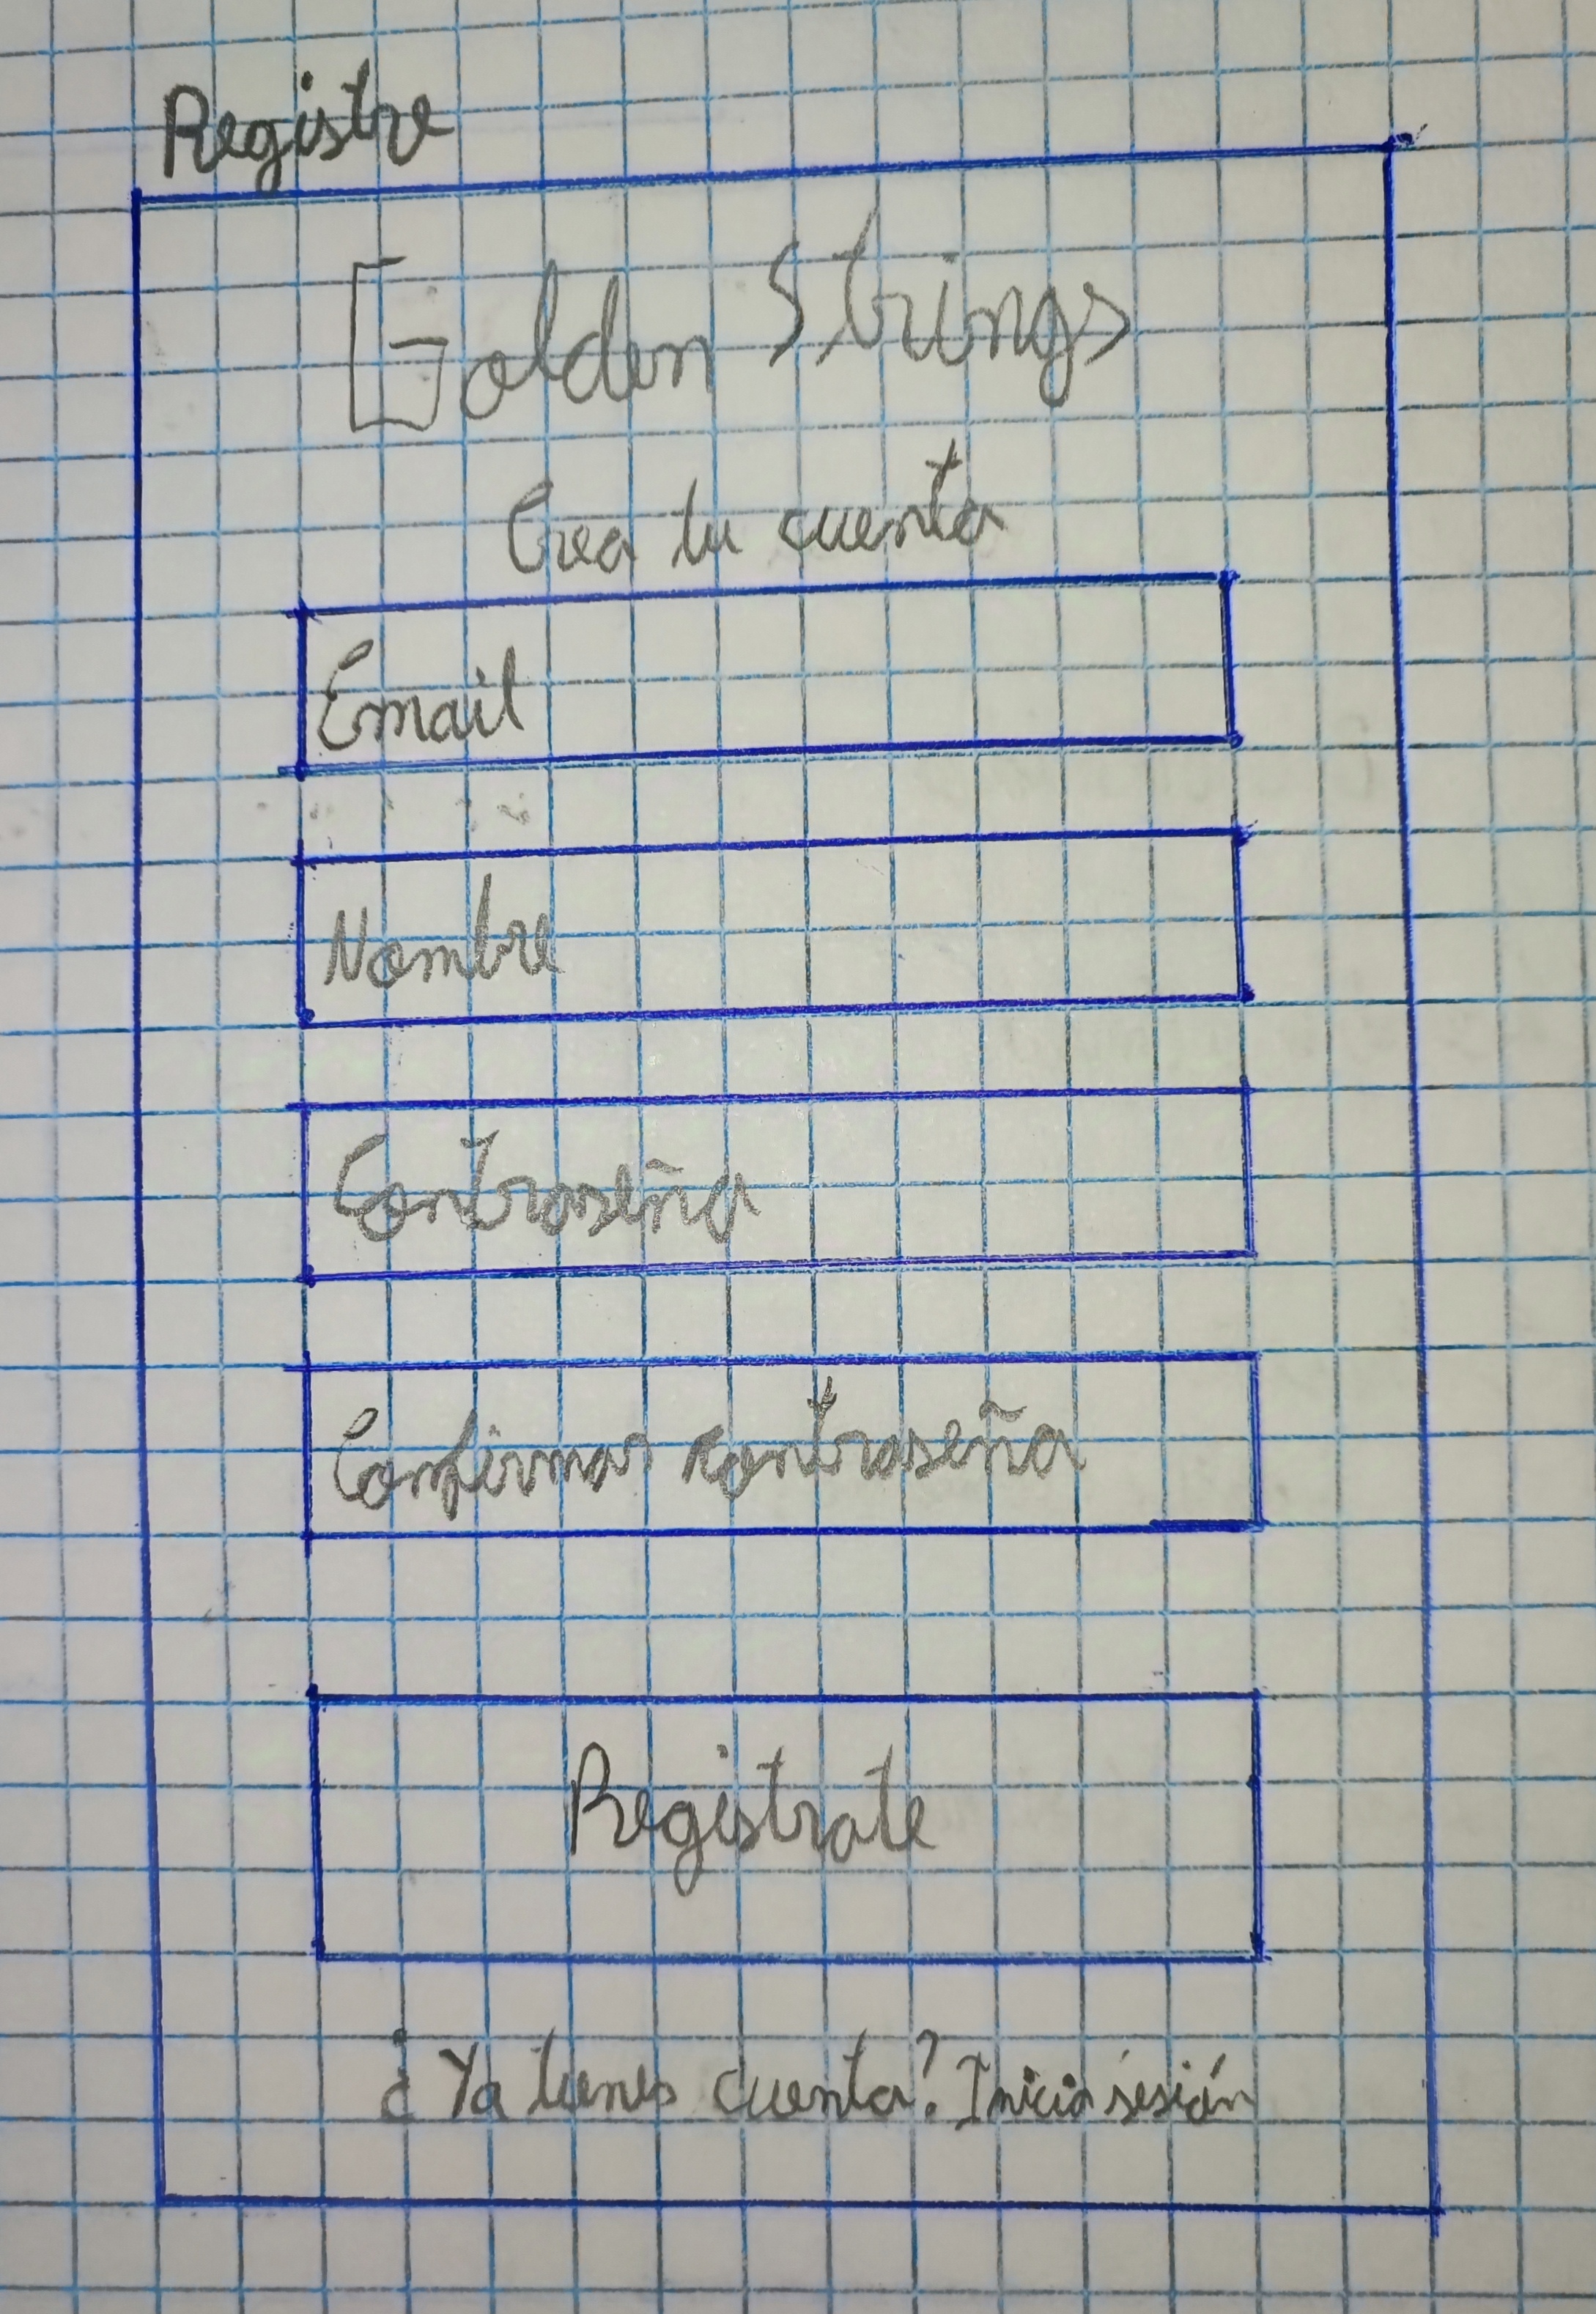 Registre
Golden Strings
Crea tu cuenta
Email
Nombre
Contraseña
Confirmar contraseña
Registrate
¿Ya tienes cuenta? Inicia sesión